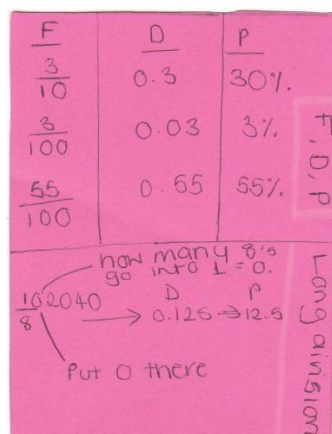 F D P
3/10 0.3 30%.
3/100 0.03 3%.
55/100 0.55 55%.
F, D, P
how many 8's
go into 1 = 0.
D P
10 2040
8 → 0.125 → 12.5
Put 0 there
Long division